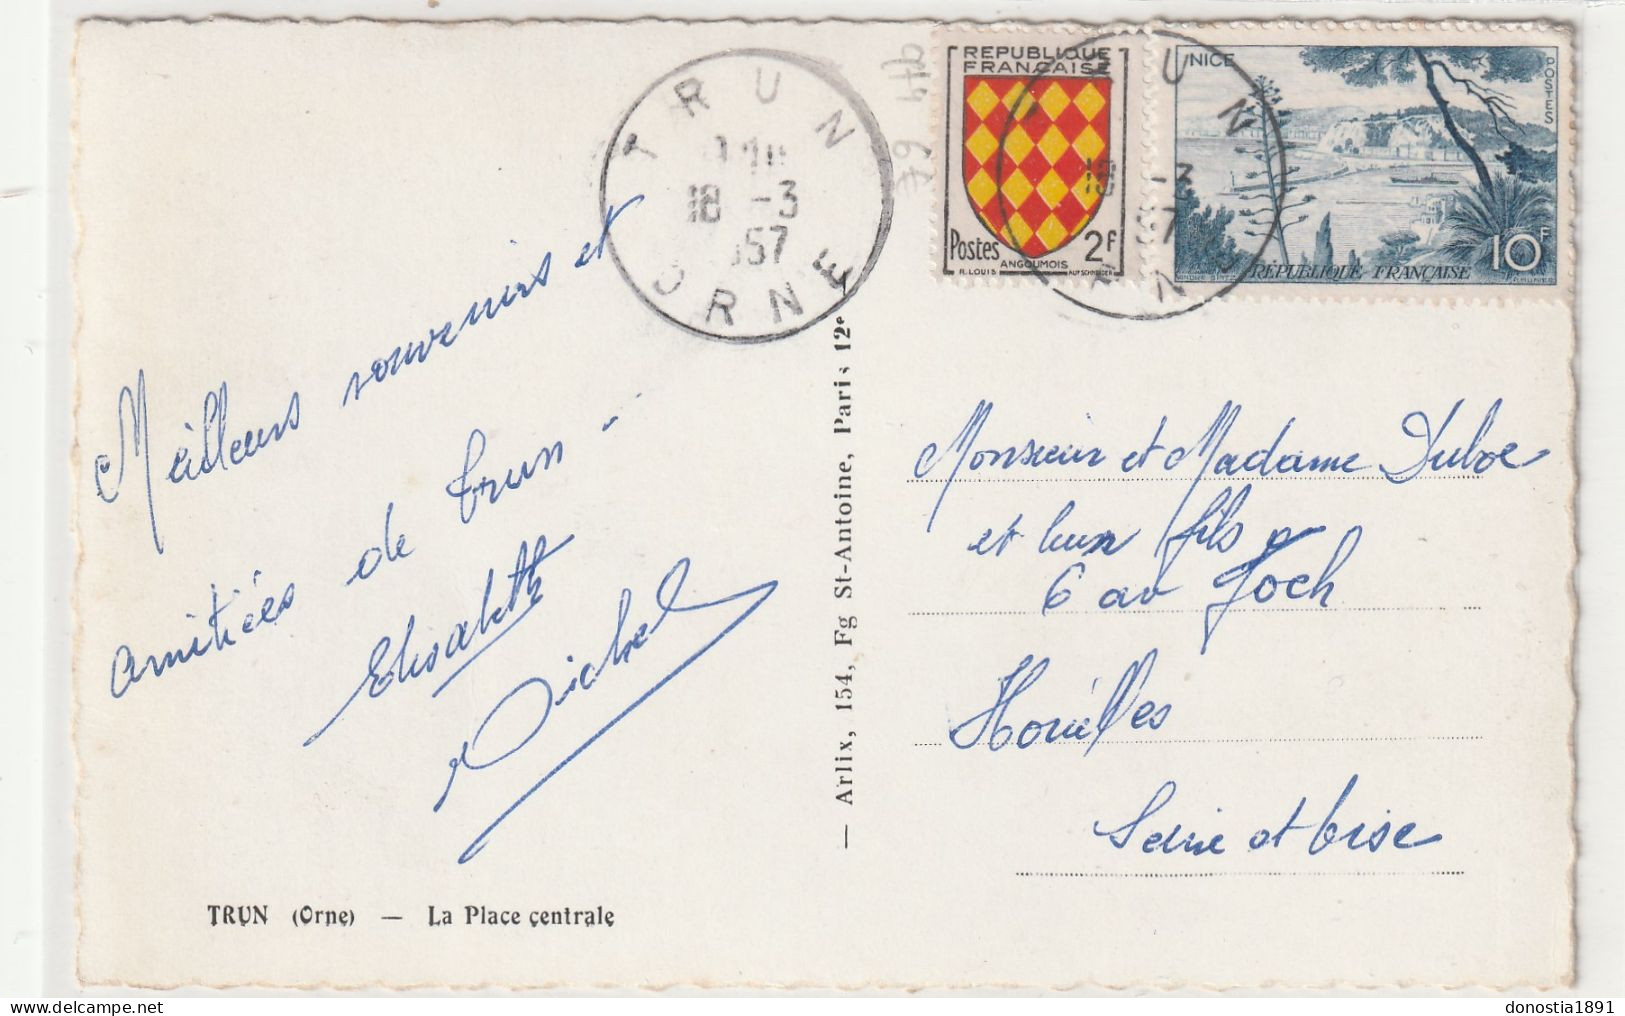 TRUN
18 -3
957
ORNE
REPUBLIQUE
FRANÇAISE
Postes 2F
ANGOUMOIS
R. LOUIS AUFSCHNEIDER
NICE
POSTES
10F
RÉPUBLIQUE FRANÇAISE
18 -3
Meilleurs souvenirs et
amitiés de Trun - ...
Elisabeth
Michel
TRUN (Orne) — La Place centrale
— Arlix, 154, Fg St-Antoine, Paris 12e
Monsieur et Madame Duboe
et leur fils
6 av Foch
Houilles
Seine et Oise
donostia1891